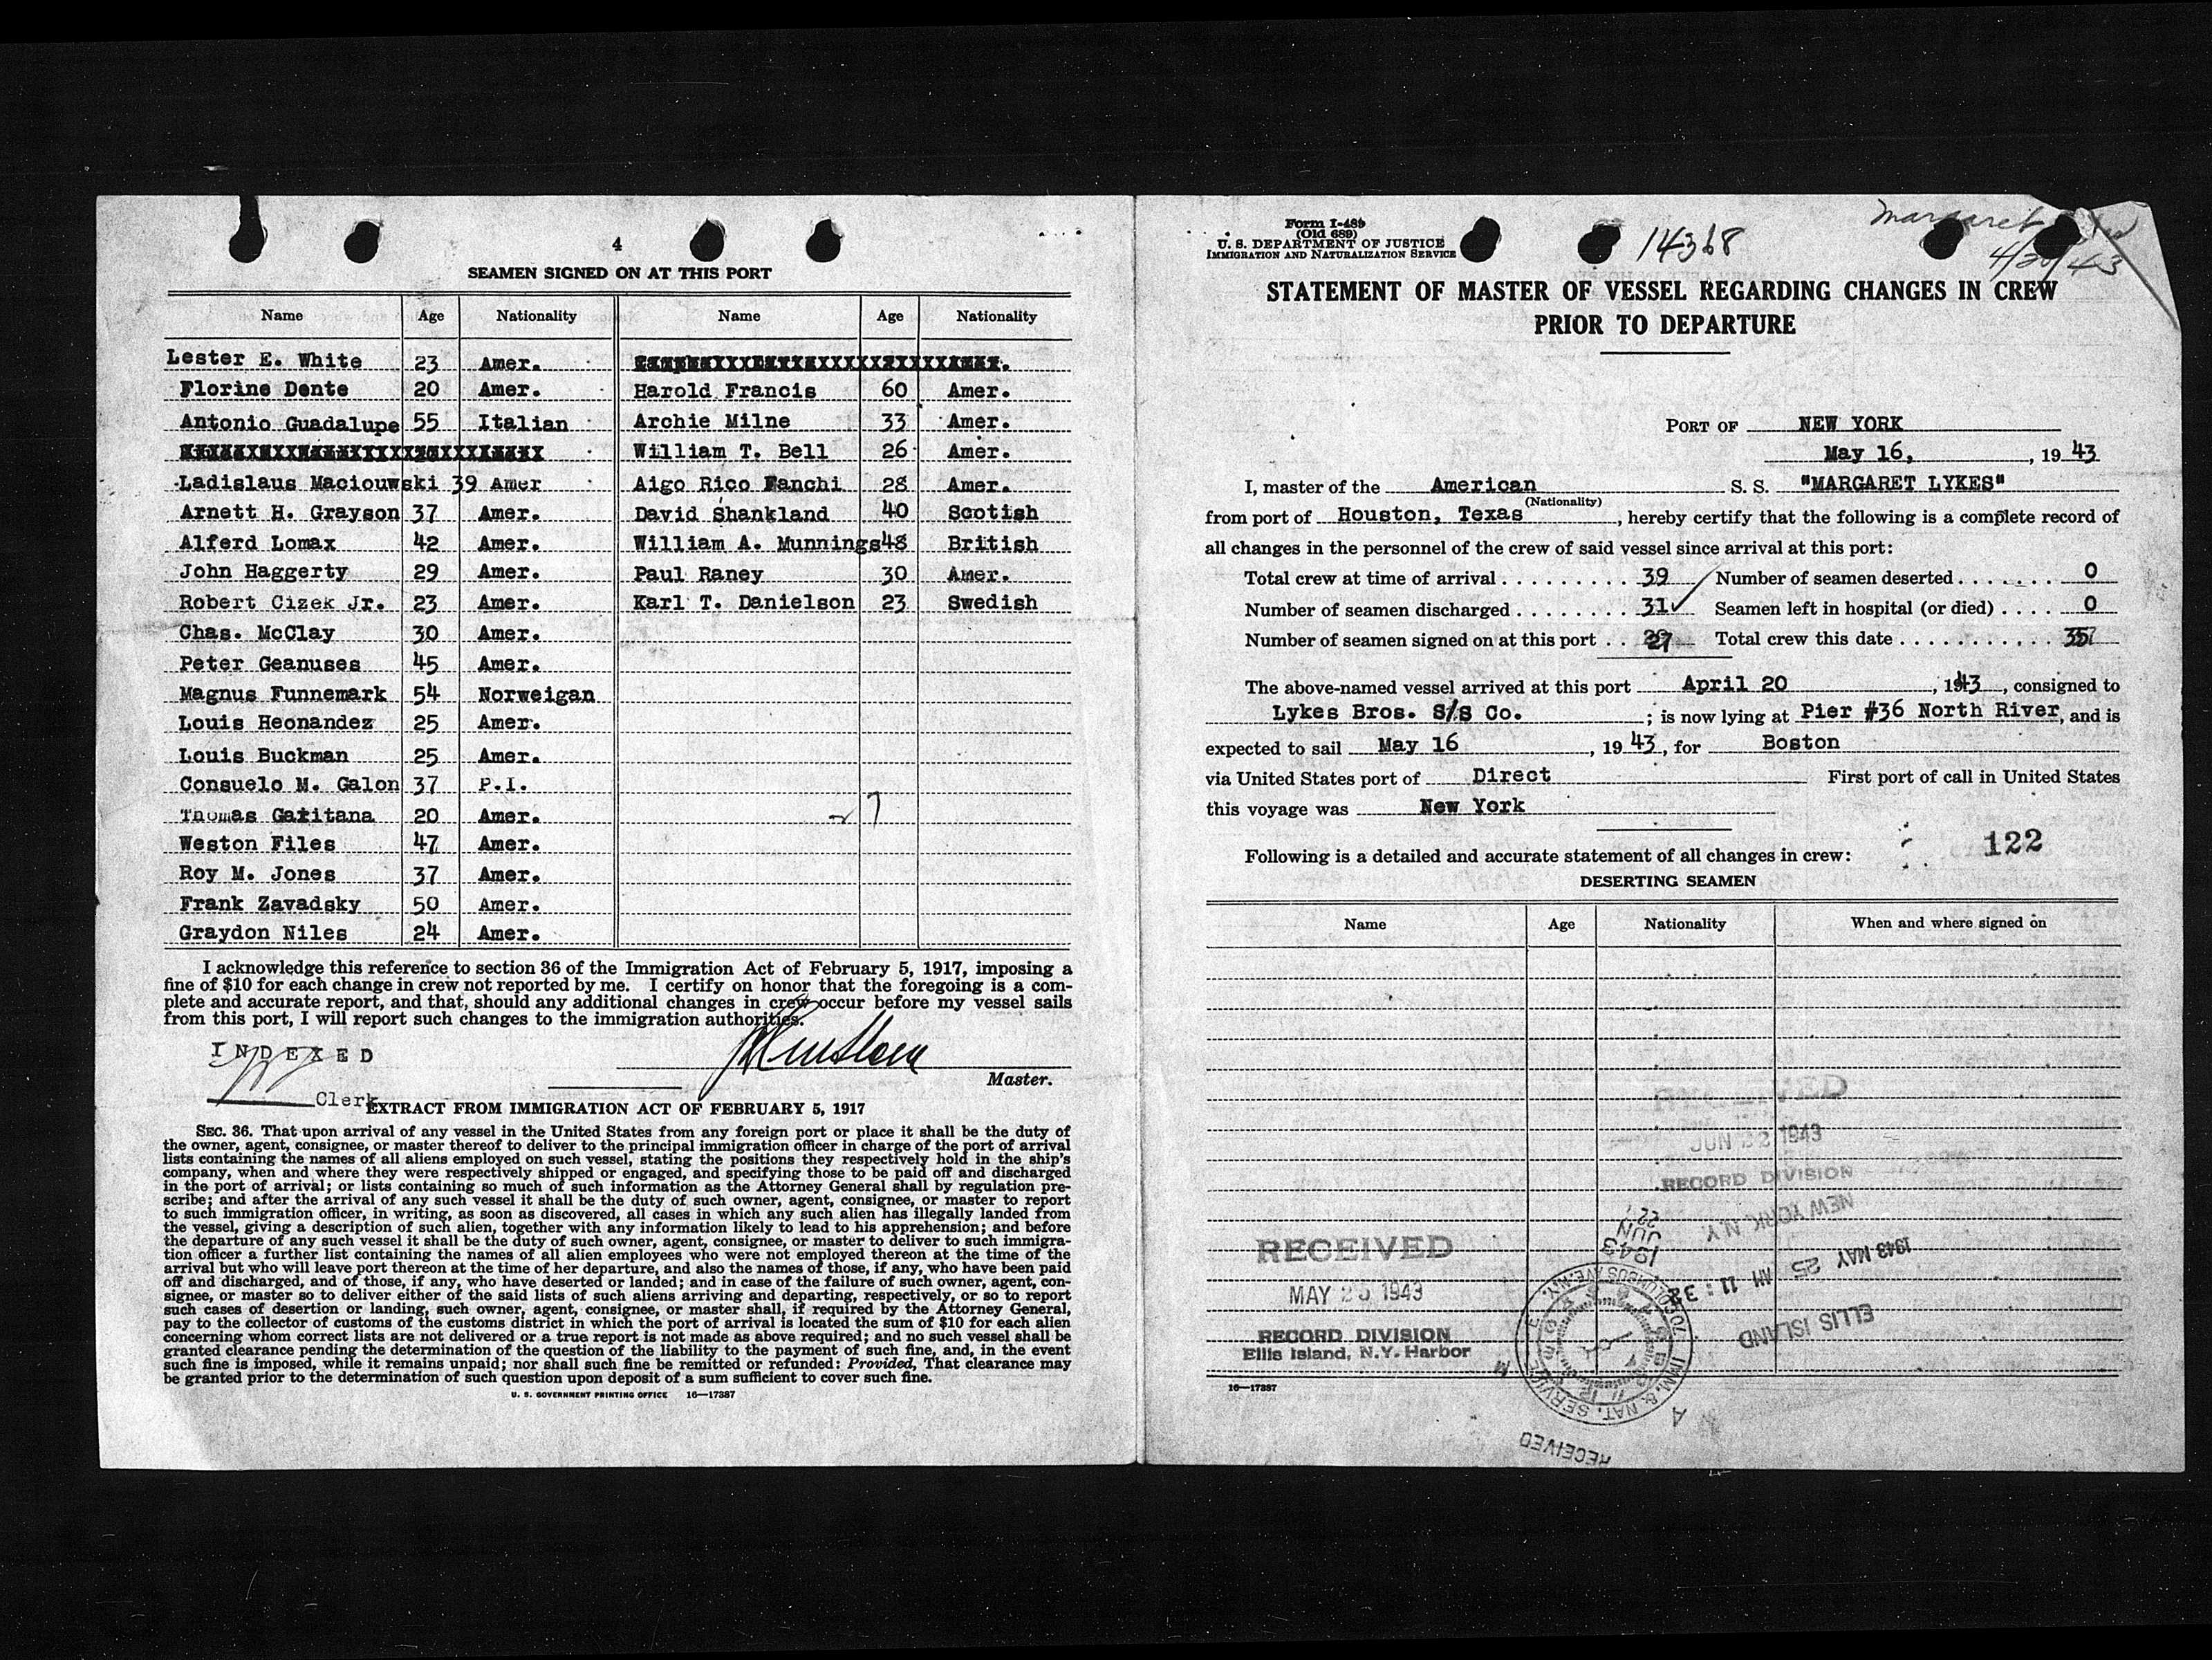 4
SEAMEN SIGNED ON AT THIS PORT
Name Age Nationality Name Age Nationality
Lester E. White 23 Amer.
Florine Dente 20 Amer. Harold Francis 60 Amer.
Antonio Guadalupe 55 Italian Archie Milne 33 Amer.
William T. Bell 26 Amer.
Ladislaus Maciouwski 39 Amer Aigo Rico Fanchi 28 Amer.
Arnett H. Grayson 37 Amer. David Shankland 40 Scotish
Alferd Lomax 42 Amer. William A. Munnings 48 British
John Haggerty 29 Amer. Paul Raney 30 Amer.
Robert Cizek Jr. 23 Amer. Karl T. Danielson 23 Swedish
Chas. McClay 30 Amer.
Peter Geanuses 45 Amer.
Magnus Funnemark 54 Norweigan
Louis Heonandez 25 Amer.
Louis Buckman 25 Amer.
Consuelo M. Galon 37 P.I.
Thomas Garitana 20 Amer.
Weston Files 47 Amer.
Roy M. Jones 37 Amer.
Frank Zavadsky 50 Amer.
Graydon Niles 24 Amer.
I acknowledge this reference to section 36 of the Immigration Act of February 5, 1917, imposing a
fine of $10 for each change in crew not reported by me. I certify on honor that the foregoing is a com-
plete and accurate report, and that, should any additional changes in crew occur before my vessel sails
from this port, I will report such changes to the immigration authorities.
INDEXED
Master.
Clerk
EXTRACT FROM IMMIGRATION ACT OF FEBRUARY 5, 1917
SEC. 36. That upon arrival of any vessel in the United States from any foreign port or place it shall be the duty of
the owner, agent, consignee, or master thereof to deliver to the principal immigration officer in charge of the port of arrival
lists containing the names of all aliens employed on such vessel, stating the positions they respectively hold in the ship's
company, when and where they were respectively shipped or engaged, and specifying those to be paid off and discharged
in the port of arrival; or lists containing so much of such information as the Attorney General shall by regulation pre-
scribe; and after the arrival of any such vessel it shall be the duty of such owner, agent, consignee, or master to report
to such immigration officer, in writing, as soon as discovered, all cases in which any such alien has illegally landed from
the vessel, giving a description of such alien, together with any information likely to lead to his apprehension; and before
the departure of any such vessel it shall be the duty of such owner, agent, consignee, or master to deliver to such immigra-
tion officer a further list containing the names of all alien employees who were not employed thereon at the time of the
arrival but who will leave port thereon at the time of her departure, and also the names of those, if any, who have been paid
off and discharged, and of those, if any, who have deserted or landed; and in case of the failure of such owner, agent, con-
signee, or master so to deliver either of the said lists of such aliens arriving and departing, respectively, or so to report
such cases of desertion or landing, such owner, agent, consignee, or master shall, if required by the Attorney General,
pay to the collector of customs of the customs district in which the port of arrival is located the sum of $10 for each alien
concerning whom correct lists are not delivered or a true report is not made as above required; and no such vessel shall be
granted clearance pending the determination of the question of the liability to the payment of such fine, and, in the event
such fine is imposed, while it remains unpaid; nor shall such fine be remitted or refunded: Provided, That clearance may
be granted prior to the determination of such question upon deposit of a sum sufficient to cover such fine.
U. S. GOVERNMENT PRINTING OFFICE 16—17387
Form I-489
(Old 689)
U. S. DEPARTMENT OF JUSTICE
IMMIGRATION AND NATURALIZATION SERVICE
14368
Margaret
4/20/43
STATEMENT OF MASTER OF VESSEL REGARDING CHANGES IN CREW
PRIOR TO DEPARTURE
PORT OF NEW YORK
May 16, , 19 43
I, master of the American S. S. "MARGARET LYKES"
(Nationality)
from port of Houston, Texas , hereby certify that the following is a complete record of
all changes in the personnel of the crew of said vessel since arrival at this port:
Total crew at time of arrival . . . . . . . . . 39 Number of seamen deserted . . . . . . . 0
Number of seamen discharged . . . . . . . . 31 Seamen left in hospital (or died) . . . . 0
Number of seamen signed on at this port . . 27 Total crew this date . . . . . . . . . . . 35
The above-named vessel arrived at this port April 20 , 1943 , consigned to
Lykes Bros. S/S Co. ; is now lying at Pier #36 North River, and is
expected to sail May 16 , 19 43, for Boston
via United States port of Direct First port of call in United States
this voyage was New York
122
Following is a detailed and accurate statement of all changes in crew:
DESERTING SEAMEN
Name Age Nationality When and where signed on
RECEIVED
JUN 22 1943
RECORD DIVISION
NEW YORK, N.Y.
1943 MAY 25 AM 11:32
ELLIS ISLAND
JUN 22
1943
RECEIVED
MAY 25 1943
RECORD DIVISION
Ellis Island, N.Y. Harbor
70 COLUMBUS AVE. N.Y.
IMM. & NAT. SERVICE
RECEIVED
16—17387